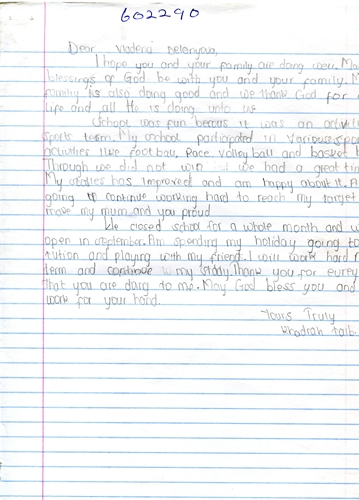 602290
Dear Vladena Nelenyova,
I hope you and your family are doing well. Ma
blessings of God be with you and your family. M
family is also doing good and we thank God for
life and all He is doing unto us
School was fun becaus it was an activi
sports team. My school participated in various spo
activities like football, Race, volleyball and basket b
Through we did not win we had a great ti
My studies has improved and am happy about it. A
going to continue working hard to reach my target
make my mum and you proud.
We closed school for a whole month and w
open in september. Am spending my holiday going to
tution and playing with my friend. I will work hard
term and continue my study. Thank you for every
that you are doing to me. May God bless you and
work for your hand.
Yours Truly
Khadijah Taib.